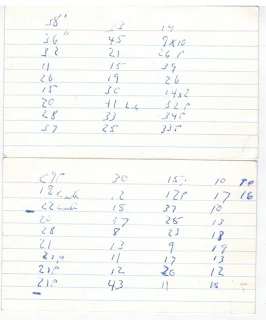 38" 33 19
36" 45 9x10
32 21 26P
11 15 39
26 19 26
15 30 14x2
20 41 L.G 32P
28 33 34P
37 25 33P
27P 30 15 10
18 12 12P 17 16
22 15 37 10
20 37 25 13
28 8 23 18
21 13 9 19
21P 11 17 13
21P 12 20 12
21P 43 11 15